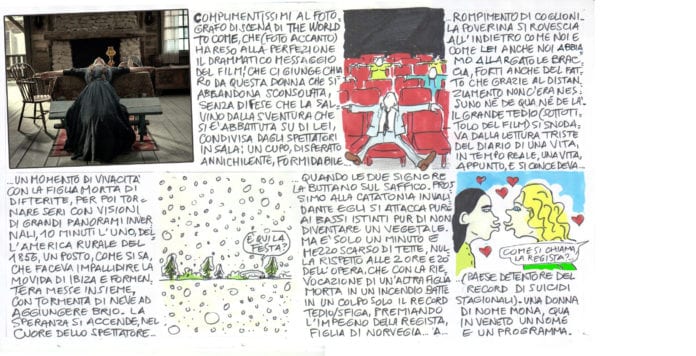 COMPLIMENTISSIMI AL FOTO,
GRAFO DI SCENA DI THE WORLD
TO COME, CHE (FOTO ACCANTO)
HA RESO ALLA PERFEZIONE
IL DRAMMATICO MESSAGGIO
DEL FILM: CHE CI GIUNGE CHIA
RO DA QUESTA DONNA CHE SI
ABBANDONA SCONSOLATA,
SENZA DIFESE CHE LA SAL,
VINO DALLA SVENTURA CHE
SI E' ABBATTUTA SU DI LEI,
CONDIVISA DAGLI SPETTATORI
IN SALA: UN CUPO, DISPERATO
ANNICHILENTE, FORMIDABILE
...ROMPIMENTO DI COGLIONI..
LA POVERINA SI ROVESCIA
ALL'INDIETRO COME NOI E
COME LEI ANCHE NOI ABBIA
MO ALLARGATO LE BRAC,
CIA, FORTI ANCHE DEL FAT,
TO CHE GRAZIE AL DISTAN,
ZIAMENTO NON C'ERA NES:
SUNO NÉ DE QUA NÉ DE LÀ.
IL GRANDE TEDIO (SOTTOTI,
TOLO DEL FILM) SI SNODA,
VA DALLA LETTURA TRISTE
DEL DIARIO DI UNA VITA,
IN TEMPO REALE, UNA VITA,
APPUNTO, E SI CONCEDEVA...
...UN MOMENTO DI VIVACITA'
CON LA FIGLIA MORTA DI
DIFTERITE, PER POI TOR,
NARE SERI CON VISIONI
DI GRANDI PANORAMI INVER
NALI, 10 MINUTI L'UNO, DEL
L'AMERICA RURALE DEL
1856, UN POSTO, COME SI SA,
CHE FACEVA IMPALLIDIRE LA
MOVIDA DI IBIZA E FORMEN,
TERA MESSE INSIEME,
CON TORMENTA DI NEVE AD
AGGIUNGERE BRIO. LA
SPERANZA SI ACCENDE, NEL
CUORE DELLO SPETTATORE...
E QUI LA
FESTA?
QUANDO LE DUE SIGNORE
LA BUTTANO SUL SAFFICO. PROS
SIMO ALLA CATATONIA INVALI
DANTE EGLI SI ATTACCA PURE
AI BASSI ISTINTI PUR DI NON
DIVENTARE UN VEGETALE.
MA E' SOLO UN MINUTO E
MEZZO SCARSO DI TETTE, NUL
LA RISPETTO ALLE 2 ORE E 20'
DELL'OPERA. CHE CON LA RIE,
VOCAZIONE DI UN'ALTRA FIGLIA
MORTA IN UN INCENDIO BATTE
IN UN COLPO SOLO IL RECORD
TEDIO/SFIGA, PREMIANDO
L'IMPEGNO DELLA REGISTA,
FIGLIA DI NORVEGIA... A...
COME SI CHIAMA
LA REGISTA?
...(PAESE DETENTORE DEL
RECORD DI SUICIDI
STAGIONALI)... UNA DONNA
DI NOME MONA, QUA
IN VENETO UN NOME
E UN PROGRAMMA.